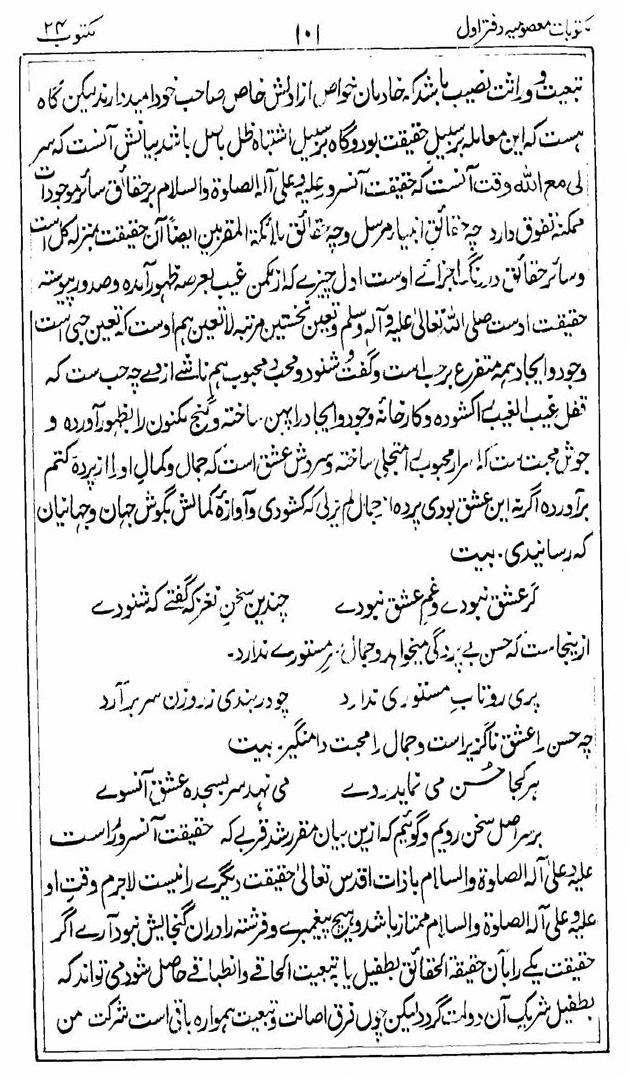 مکتوبات معصومیہ دفتر اول ۱۰۱ مکتوب ۲۴
تبعیت و وراثت نصیب باشد کہ خادمان خواص از اولش خاص صاحب خود امیدوارند لیکن گاہ
ہست کہ این معاملہ بر سبیل حقیقت بود و گاہ بر سبیل اشتباہ ظل باصل باشد بیانش آنست کہ سر
لی مع اللہ وقت آنست کہ حقیقت آنسرور علیہ و علی آلہ الصلوۃ والسلام بر حقائق سائر موجودات
ممکنہ تفوق دارد چہ حقائق انبیاء مرسل و چہ حقائق ملائکۃ المقربین ایضاً آن حقیقت بمنزلہ کل است
و سائر حقائق در رنگ اجزائے اوست اول چیزے کہ از مکمن غیب بعرصہ ظہور آمدہ و صدور پیوستہ
حقیقت اوست صلی اللہ تعالی علیہ و آلہ وسلم و تعین نخستین مرتبہ لاتعین ہم اوست کہ تعین حبی است
وجود و ایجاد ہمہ متفرع بر حب است و گفت و شنود و محب و محبوب ہم ناشے از وے چہ حب ست کہ
قفل غیب الغیب را کشودہ و کارخانہ وجود و ایجاد را پہن ساختہ و گنج مکنون را بظہور آوردہ و
جوش محبت ست کہ اسرار محبوب را متجلی ساختہ و سردش عشق است کہ جمال و کمال او را از پردہ کتم
برآوردہ اگر نہ این عشق بودی پردہ از جمال لم یزلی کہ کشودی و آوازۂ کمالش بگوش جہان و جہانیان
کہ رسانیدی۔ بیت
گر عشق نبودے و غم عشق نبودے چندین سخن نغز کہ گفتے کہ شنودے
ازینجاست کہ حسن بے پردگی میخواہد و جمال سر مستورے ندارد۔
پری رو تاب مستوری ندارد چو در بندی ز روزن سر برآرد
چہ حسن را عشق ناگزیر است و جمال را محبت دامنگیر۔ بیت
ہر کجا حسن می نماید روے می نہد سر بسجدہ عشق آنسوے
بر سر اصل سخن رویم و گوئیم کہ ازین بیان مقرر شد قربے کہ حقیقت آنسرور راست
علیہ و علی آلہ الصلوۃ والسلام با ذات اقدس تعالیٰ حقیقت دیگرے را نیست لاجرم وقت او
علیہ و علی آلہ الصلوۃ والسلام ممتاز باشد و ہیچ پیغمبرے و فرشتہ را دران گنجایش نبود آرے اگر
حقیقت یکے را بآن حقیقۃ الحقائق بطفیل یا بہ تبعیت الحاقے و انطباقے حاصل شود می تواند کہ
بطفیل شریک آن دولت گردد لیکن چون فرق اصالت و تبعیت ہموارہ باقی است شرکت من